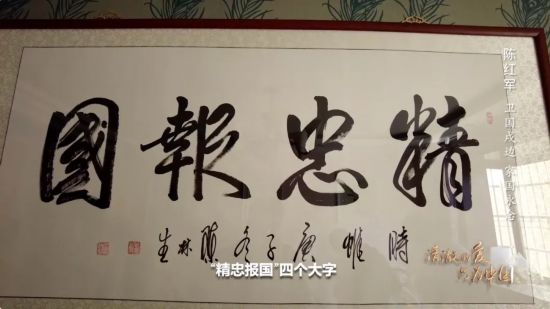 精忠報國
時維庚子冬 林生
陈红军 卫国戍边 家国永
清澈的爱
只为中国
“精忠报国”四个大字